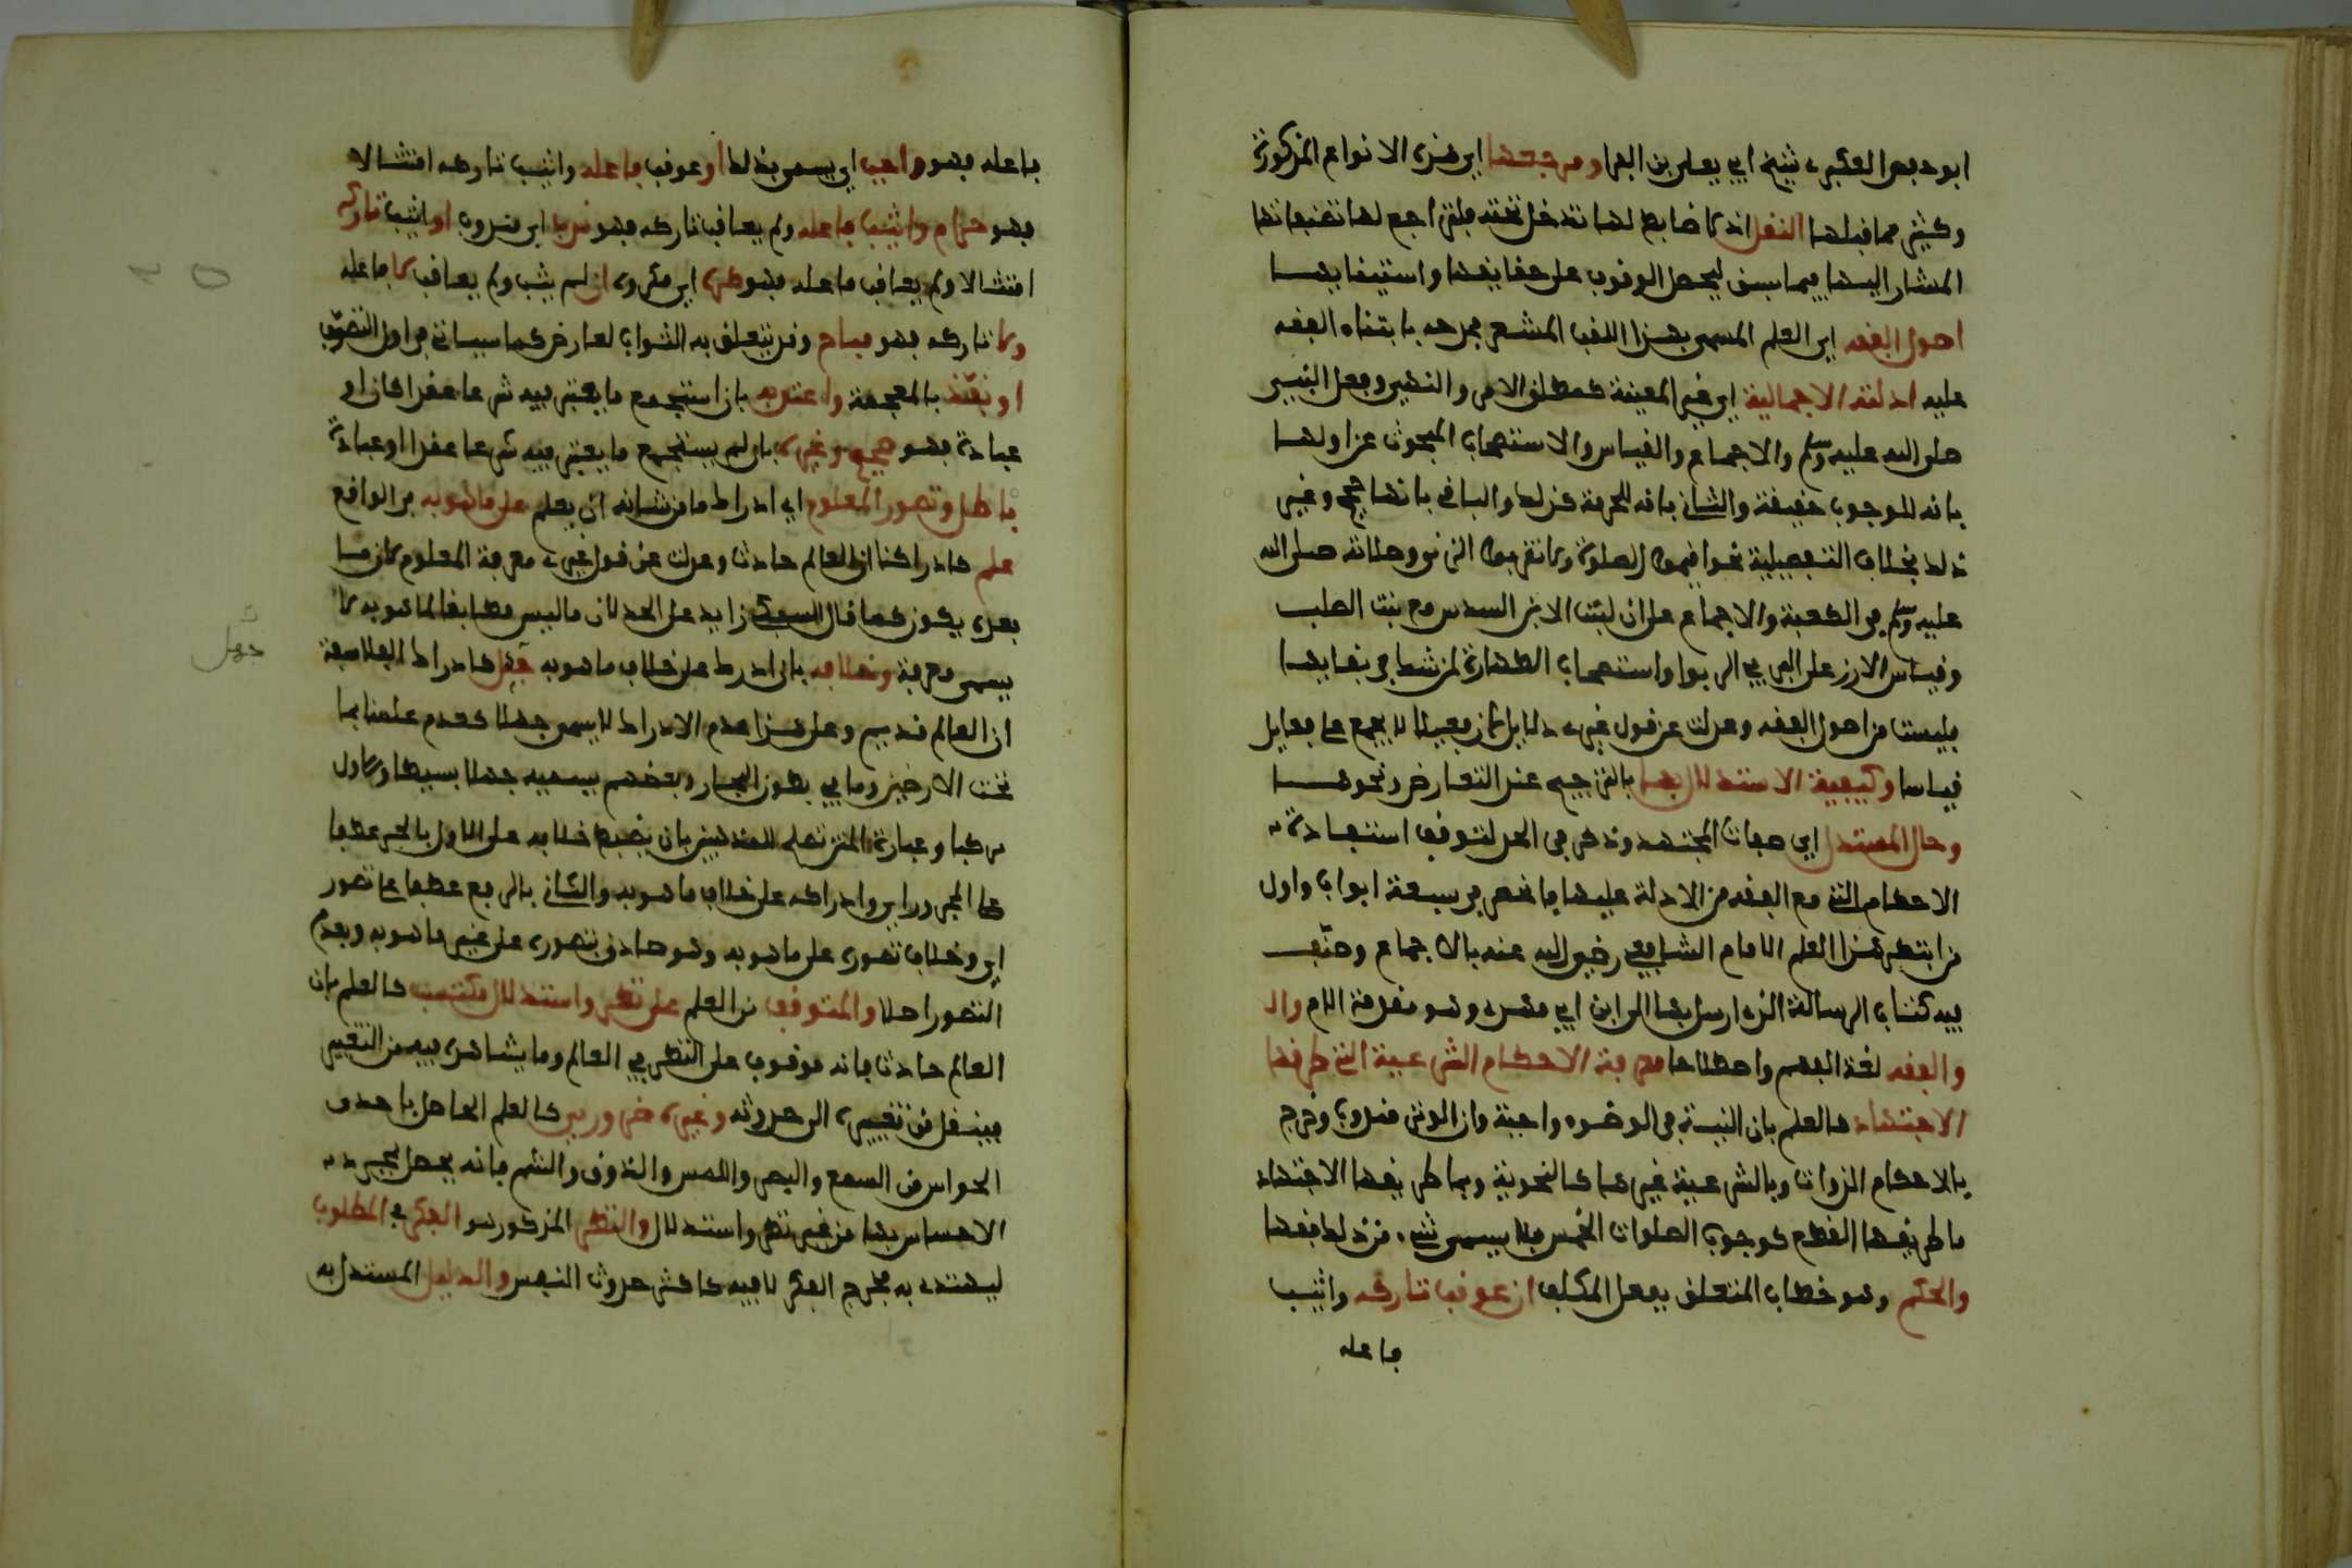 ابو حفص العكبرى شيخ ابي يعلى بن الفرا ومرجعها اي هذه الانواع المذكورة
وكثير مما قبلها النقل اذ لا ضابط لها تدخل تحته فلتراجع لها تصنيفاتها
المشار اليها فيما سبق ليحصل الوقوف على حقايقها واستيفايها
اصول الفقه اي العلم المسمى بهذا اللقب المشعر بمدحه بابتناء الفقه
عليه ادلته الاجمالية اي غير المعينة كمطلق الامر والنهي وفعل النبي
صلى الله عليه وسلم والاجماع والقياس والاستصحاب المبحوث عن اولها
بانه للوجوب حقيقة والثاني بانه للحرمة كذلك والباقي بانها حجج وغير
ذلك بخلاف التفصيلية نحو اقيموا الصلوة ولا تقربوا الزنى وصلاته صلى الله
عليه وسلم في الكعبة والاجماع على ان لبنت الابن السدس مع بنت الصلب
وقياس الارز على البر في الربوا واستصحاب الطهارة لمن شك في بقايها
فليست من اصول الفقه وعدلت عن قول غيره دلايل لان فعيلا لا يجمع على فعايل
قياسا وكيفية الاستدلال بها بالترجيح عند التعارض ونحوهـا
وحال المستدل اي صفات المجتهد وذكر في الحد لتوقف استفادة
الاحكام التي مع الفقه من الادلة عليها فانحصر في سبعة ابواب واول
من ابتكر هذا العلم الامام الشافعي رضي الله عنه بالاجماع وصنف
فيه كتاب الرسالة الذي ارسل بها الى ابن مهدي وهو مقدمة الام وال
والفقه لغة الفهم واصطلاحا معرفة الاحكام الشرعية التي طريقها
الاجتهاد كالعلم بان النية في الوضوء واجبة وان الوتر مندوب وخرج
بالاحكام الذوات وبالشرعية غيرها كالنحوية وبما طريقها الاجتهاد
ما طريقها القطع كوجوب الصلوات الخمس فلا يسمى شيء من ذلك فقها
والحكم وهو خطاب المتعلق بفعل المكلف ان عوقب تاركه واثيب
فاعله
فاعله فهو واجب اي يسمى بذلك او عوقب فاعله واثيب تاركه امتثالا
فهو حرام او اثيب فاعله ولم يعاقب تاركه فهو ندب اي مندوب او اثيب تاركه
امتثالا ولم يعاقب فاعله فهو كره اي مكروه او لم يثب ولم يعاقب لا فاعله
ولا تاركه فهو مباح وقد يتعلق به الثواب لعارض كما سياتي في اول التصوف
او نفذ بالمعجمة واعتد به بان استجمع ما يعتبر فيه شرعا عقدا كان او
عبادة فهو صحيح وغيره بان لم يستجمع ما يعتبر فيه شرعا عقدا او عبادة
باطل وتصور المعلوم اي ادراك ما من شانه ان يعلم على ما هو به في الواقع
علم كادراكنا ان العالم حادث وعدلت عن قول غيره معرفة المعلوم لان ما
بعده يكون كما قال السبكي زايد على الحد لان ما ليس مطابقا لما هو به لا
يسمى معرفة وخلافه بان ادرك على خلاف ما هو به جهل كادراك الفلاسفة
ان العالم قديم وعلى هذا عدم الادراك لا يسمى جهلا كعدم علمنا بما
تحت الارضين وما في بطون البحار وبعضهم يسميه جهلا بسيطا والاول
مركبا وعبارة المتن تصلح للمذهبين بان يضبط خلافه على الاول بالجر عطفا
على المجرور اي وادراكه على خلاف ما هو به والثاني بالرفع عطفا على تصور
اي وخلاف تصوره على ما هو به وهو صادق بتصوره على غير ما هو به وبعدم
التصور اصلا والمتوقف من العلم على نظر واستدلال مكتسب كالعلم بان
العالم حادث فانه موقوف على النظر في العالم وما يشاهد فيه من التغير
فينتقل من تغييره الى حدوثه وغيره ضروري كالعلم الحاصل باحدى
الحواس من السمع والبصر واللمس والذوق والشم فانه يحصل بمجرد
الاحساس بها من غير نظر واستدلال والنظر المذكور هو الفكر في المطلوب
ليهتدى به فخرج الفكر لا فيه كاكثر حدوث النفس والدليل المستدل به
جهل